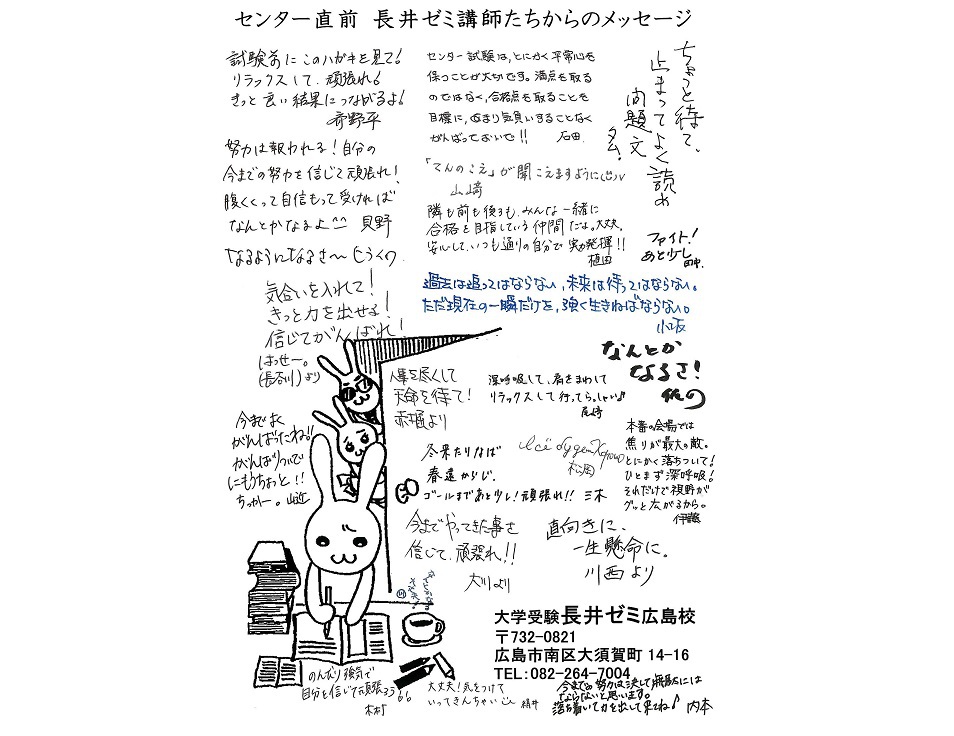 センター直前 長井ゼミ講師たちからのメッセージ
試験前にこのハガキを見て!
リラックスして、頑張れ!
きっと良い結果につながるよ!
センター試験は、とにかく平常心を
保つことが大切です。満点を取る
のではなく、合格点を取ることを
目標に、あまり気負いすることなく
がんばっておいで!! 石田
ちょっと待て、
止まってよく読め
問題文
努力は報われる!自分の
今までの努力を信じて頑張れ!
腹くくって自信もって受ければ
なんとかなるよ^^ 貝野
「てんのこえ」が聞こえますように
山崎
隣も前も後ろも、みんな一緒に
合格を目指している仲間だよ。大丈夫。
安心して、いつも通りの自分で実力発揮!!
植田
ファイト!
あと少し
田中
なるようになるさ〜
過去は追ってはならない、未来は待ってはならない。
ただ現在の一瞬だけを、強く生きねばならない。
小坂
気合いを入れて!
きっと力を出せる!
信じてがんばれ!
はっせー。
(長谷川)より
なんとか
なるさ!
人事を尽くして
天命を待て!
赤堀より
深呼吸して、肩をまわして
リラックスして行ってらっしゃい♪
尾崎
今までよく
がんばったね!!
がんばりついで
にもうちょっと!!
冬来たりなば
春遠からじ。
ゴールまであと少し!頑張れ!! 三木
松岡
本番の会場では
焦りが最大の敵。
とにかく落ちついて!
ひとまず深呼吸!
それだけで視野が
グッと広がるから。
伊藤
今までやってきた事を
信じて、頑張れ!!
大川より
直向きに、
一生懸命に。
川西より
大学受験 長井ゼミ広島校
〒732-0821
広島市南区大須賀町 14-16
TEL:082-264-7004
のんびり強気で
自分を信じて頑張ろう!!
木村
大丈夫!気をつけて
いってきんちゃい
今までの努力は決して無駄には
ならないと思います。
落ち着いて力を出して来てね♪ 内本